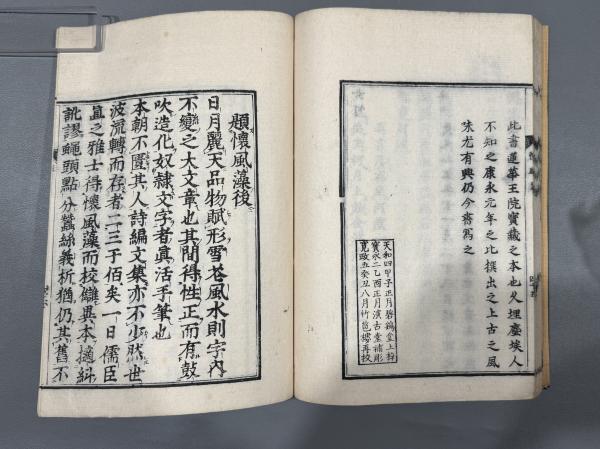 此書蓮華王院寶藏之本也久埋塵埃人
不知之康永元年之比撰出之上古之風
味尤有興仍今書寫之
天和四甲子正月碧鷗堂上梓
寶永二乙酉正月濱古堂補彫
寛政五癸丑八月竹苞樓再校
題懷風藻後
日月麗天品物賦形雪花風水則宇内
不變之大文章也其間得性正而有鼓
吹造化奴隷文字者眞活手筆也
本朝不匱其人詩編文集亦不少然世
波流轉而存者二三于佰矣一日儒臣
直之雅士得懷風藻而校讎異本摘糾
訛謬蝿頭點分蠶絲義析猶仍其舊不